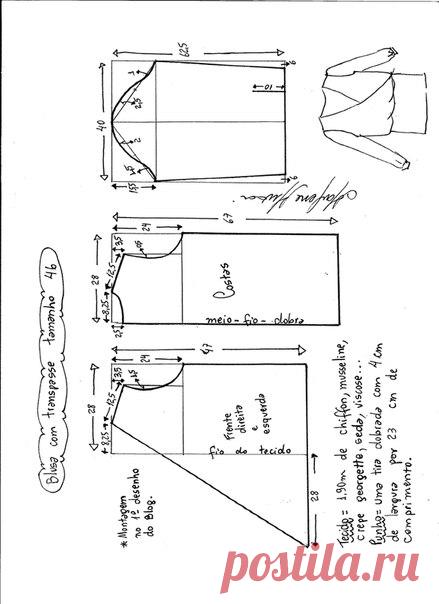 Blusa com transpasse tamanho 46
62,5
40
15,5
1
2,5
2
1,5
10
6
6
67
24
28
3,5
12,5
8,25
2,5
Costas
meio-fio-dobra
47
24
28
3,5
12,5
8,25
Frente
direita
e
esquerda
fio do tecido
28
* Montagem
no 1º desenho
do Blog.
Tecido = 1,90m de chiffon, musseline,
crepe georgette, seda, viscose...
Punho = uma tira dobrada com 4 cm
de largura por 23 cm de
comprimento.
postila.ru